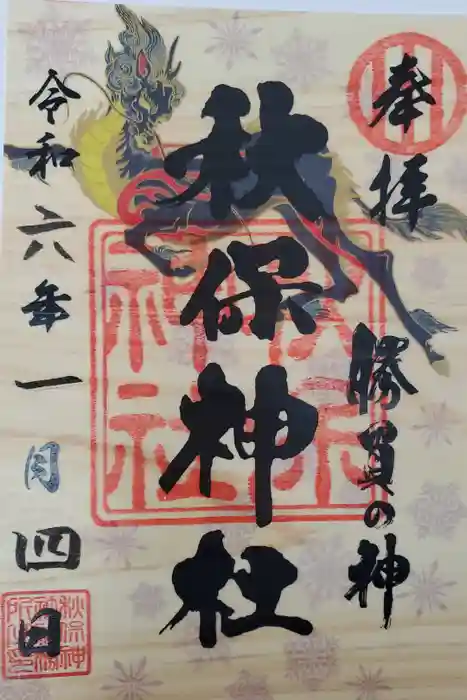 奉拝
勝負の神
秋保神社
秋保
神社
令和六年一月四日